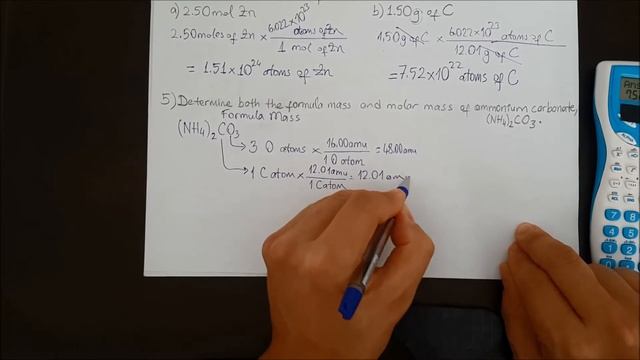 a) 2.50 mol Zn
2.50 moles of Zn × 6.022×10^23 atoms of Zn / 1 mol of Zn
= 1.51×10^24 atoms of Zn
b) 1.50 g of C
1.50 g of C × 6.022×10^23 atoms of C / 12.01 g of C
= 7.52×10^22 atoms of C
5) Determine both the formula mass and molar mass of ammonium carbonate,
(NH4)2CO3.
Formula Mass
(NH4)2CO3
3 O atoms × 16.00amu / 1 O atom = 48.00amu
1 C atom × 12.01amu / 1 C atom = 12.01 am
Ans
7 8
4 5
1 2
0